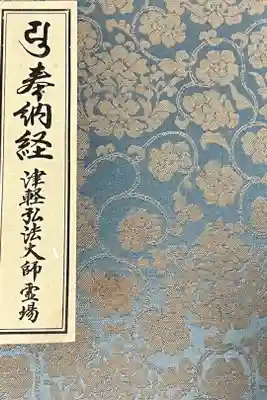 奉納経
津軽弘法大師霊場